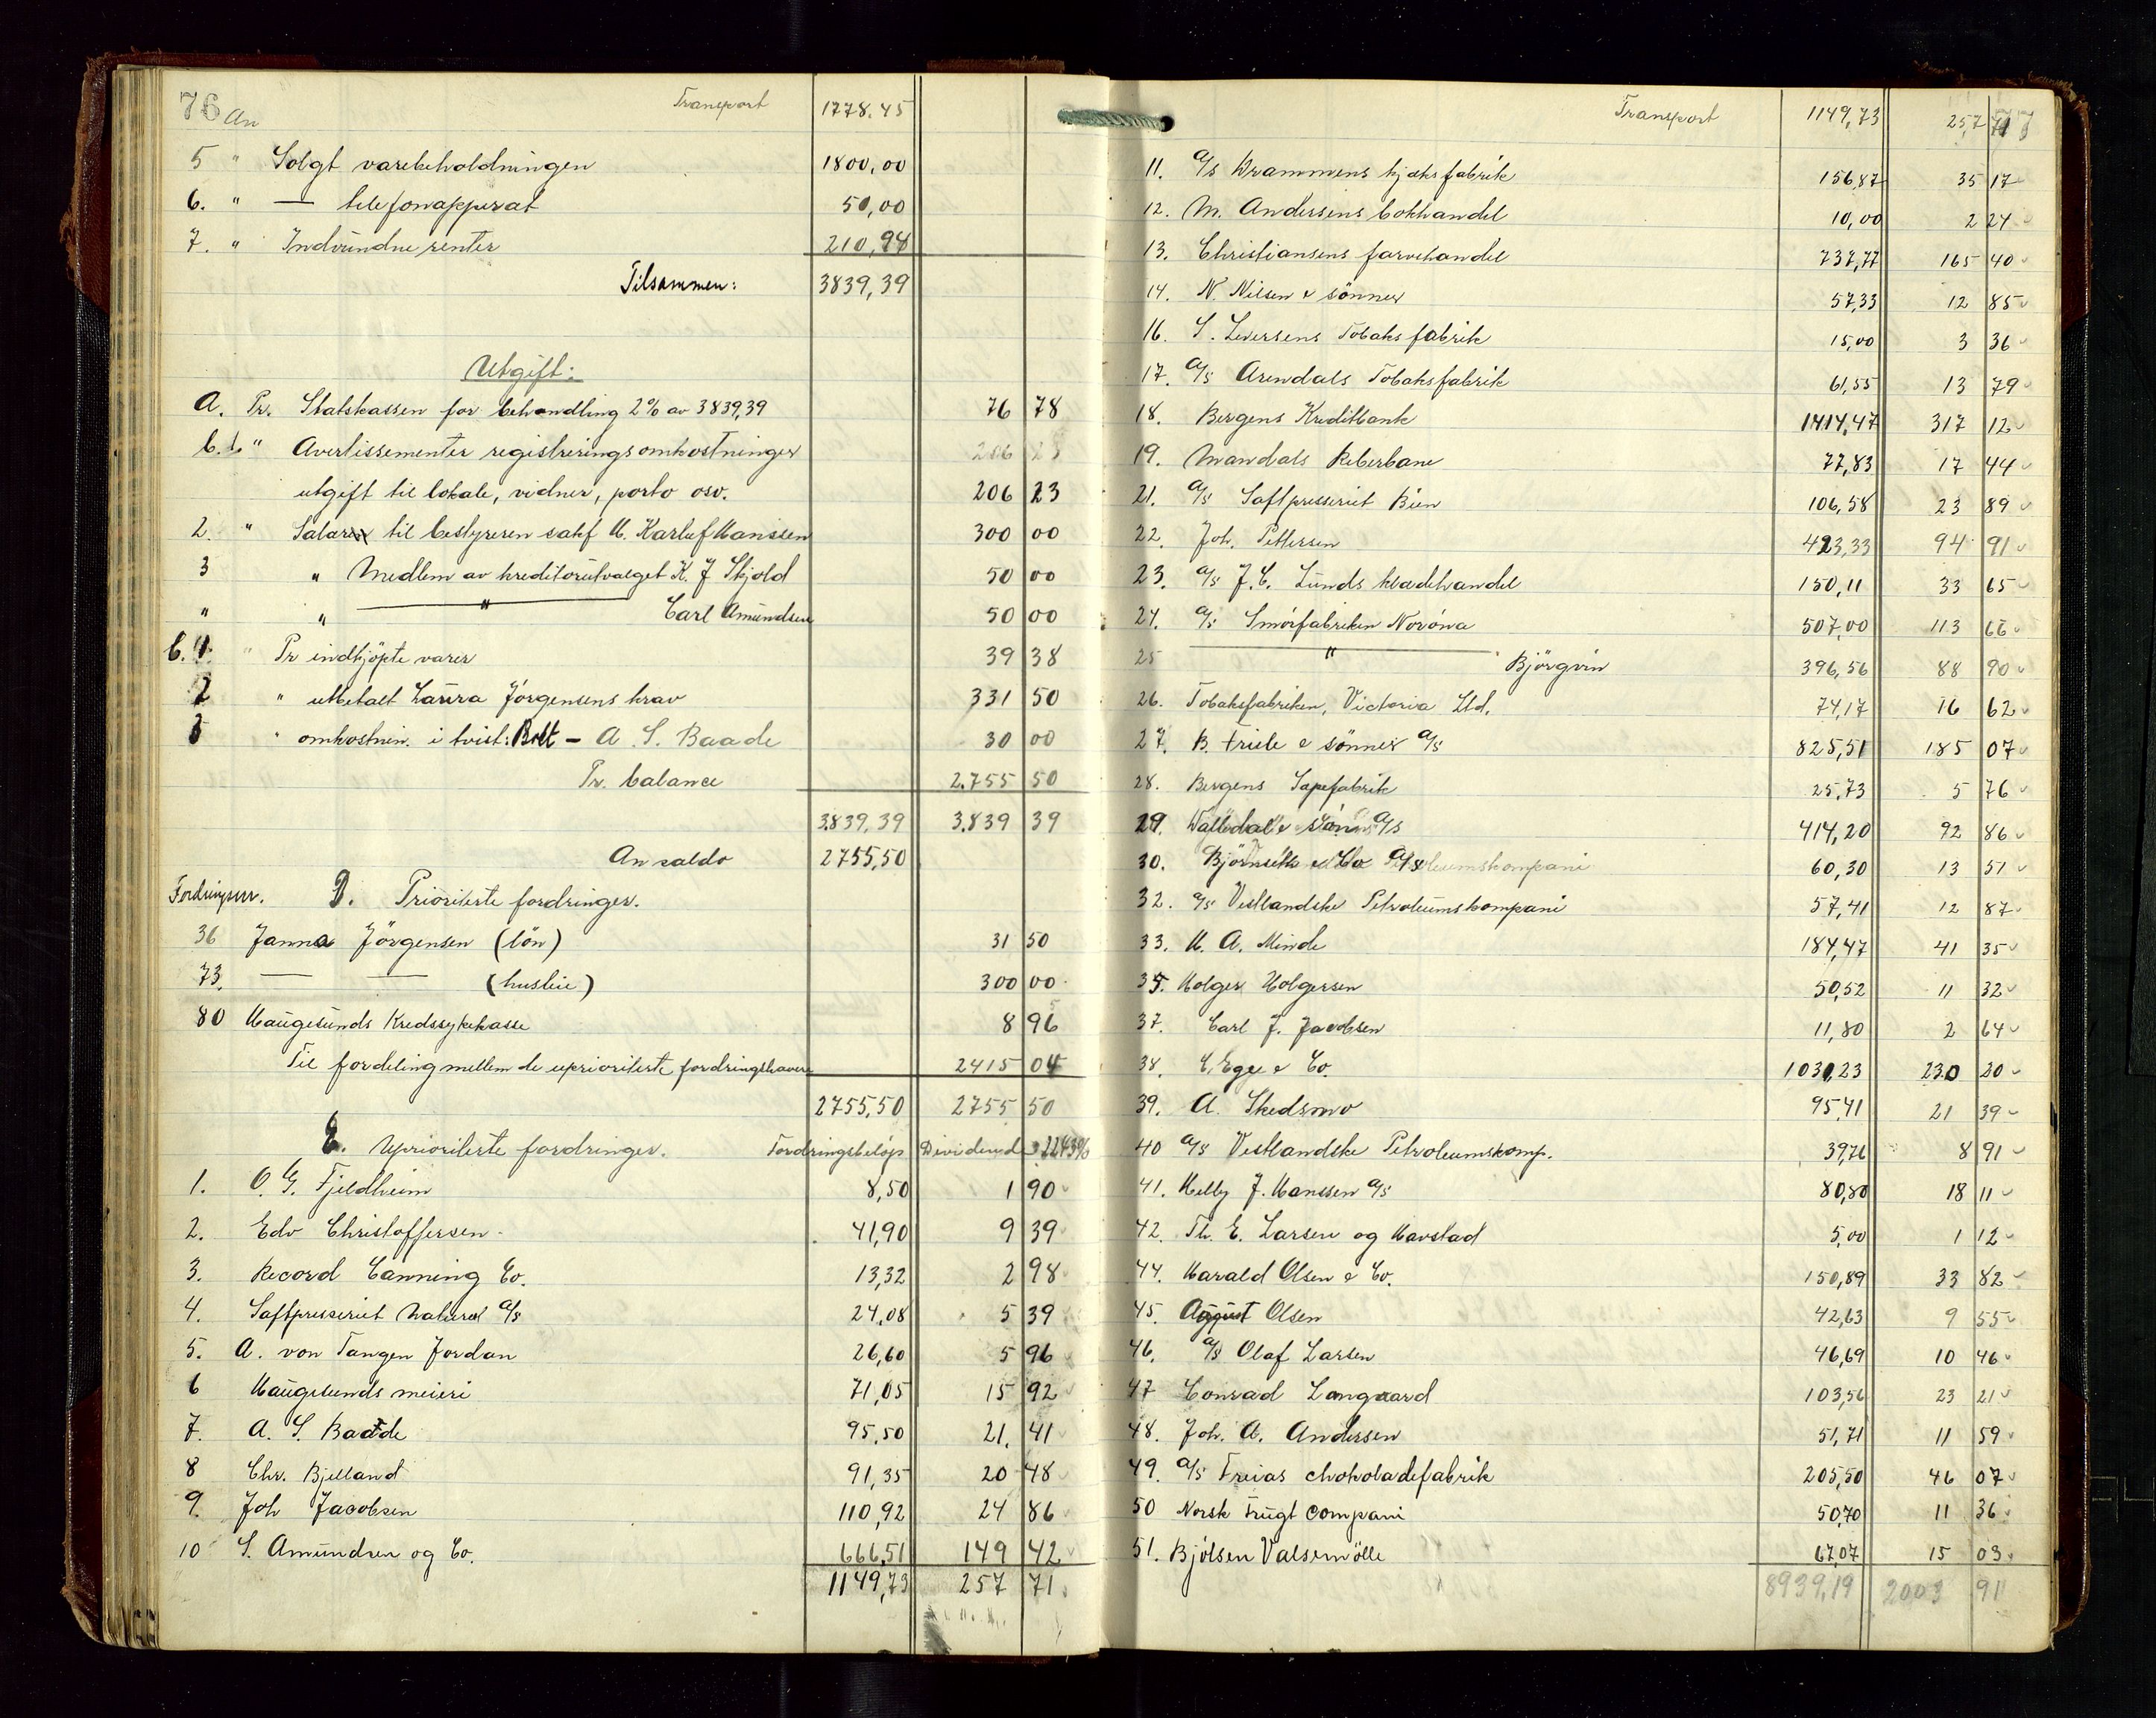 76 An Transport 1778.45
5 " Solgt varebeholdningen 1800,00
6. " — telefonapperat 50,00
7. " Indvundne renter 210,94
Tilsammen: 3839,39
Utgift:
A. Pr. Statskassen for behandling 2% av 3839,39 76 78
b.1 " Avertissementer registreringsomkostninger 206 23
utgift til lokale, vidner, porto osv. 206 23
2. " Salarer til bestyreren sakf H. Karluf Hanssen 300 00
3 " Medlem av kreditorutvalget K. J Skjold 50 00
" " — " — Carl Amundsen 50 00
C.1. " Pr indkjöpte varer 39 38
2 " utbetalt Laura Jörgensens krav 331 50
3 " omkostnin. i tvist: Bolt - A. S. Baade 30 00
Pr. balance 2.755 50
3.839,39 3.839 39
An saldo 2755,50
Fordringsnr. D. Prioriterte fordringer.
36 Janna Jörgensen (lön) 31 50
73. — — (husleie) 300 00
80 Haugesunds Kredssykekasse 8 96
Til fordeling mellem de uprioriterte fordringshavere 2415 04
2755,50 2755 50
E. Uprioriterte fordringer. Fordringsbelöp Dividend 22,43%
1. O. G. Fjeldheim 8,50 1 90
2. Edv Christoffersen 41,90 9 39
3. Record Canning Co. 13,32 2 98
4. Saftpresseriet Naturel A/S 24,08 5 39
5. A. von Tangen Jordan 26,60 5 96
6 Haugesunds meieri 71,05 15 92
7. A. S. Baade 95,50 21. 41
8 Chr. Bjelland 91,35 20 48
9. Joh Jacobsen 110,92 24 86
10 S. Amundsen og Co. 666,51 149 42
1149,73 257 71
77 Transport 1149,73 257 71
11. A/S Brammens kjeksfabrik 156,87 35 17
12. M. Andersens bokhandel 10,00 2 24
13. Christiansens farvehandel 737,77 165 40
14. N. Nilsen & sönner 57,33 12 85
16. S. Iversens Tobaksfabrik 15,00 3 36
17. A/S Arendals Tobaksfabrik 61,55 13 79
18. Bergens Kreditbank 1414,47 317 12
19. Mandals Reberbane 77,83 17 44
21. A/S Saftpresseriet Bien 106,58 23 89
22. Joh. Pettersen 423,33 94 91
23. A/S J. C. Lunds klædehandel 150,11 33 65
24. A/S Smörfabriken Noröna 507,00 113 66
25 — " — Björgvin 396,56 88 90
26. Tobaksfabriken, Victoria Ltd. 74,17 16 62
27. B. Friele & sönner A/S 825,51 185 07
28. Bergens Sæpefabrik 25,73 5 76
29. Walledal & sön A/S 414,20 92 86
30. Björnseth & Co A/S 60,30 13 51
32. A/S Vestlandske Petroleumskompani 57,41 12 87
33. H. A. Minde 184,47 41 35
35. Holger Holgersen 50,52 11 32
37. Carl J. Jacobsen 11,80 2 64
38. E. Ege & Co. 1030,23 230 20
39. A. Skedsmo 95,41 21 39
40 A/S Vestlandske Petroleumskomp. 39,76 8 91
41. Helly J. Hanssen A/S 80,80 18 11
42. Th. E. Larsen og Havstad 5,00 1 12
44. Harald Olsen & Co. 150,89 33 82
45. August Olsen 42,63 9 55
46. A/S Olaf Larsen 46,69 10 46
47 Conrad Langaard 103,56 23 21
48. Joh. A. Andersen 51,71 11 59
49. A/S Freias chokoladefabrik 205,50 46 07
50 Norsk Frugt Compani 50,70 11 36
51. Bjölsen Valsemölle 67,07 15 03
8939,19 2003 91